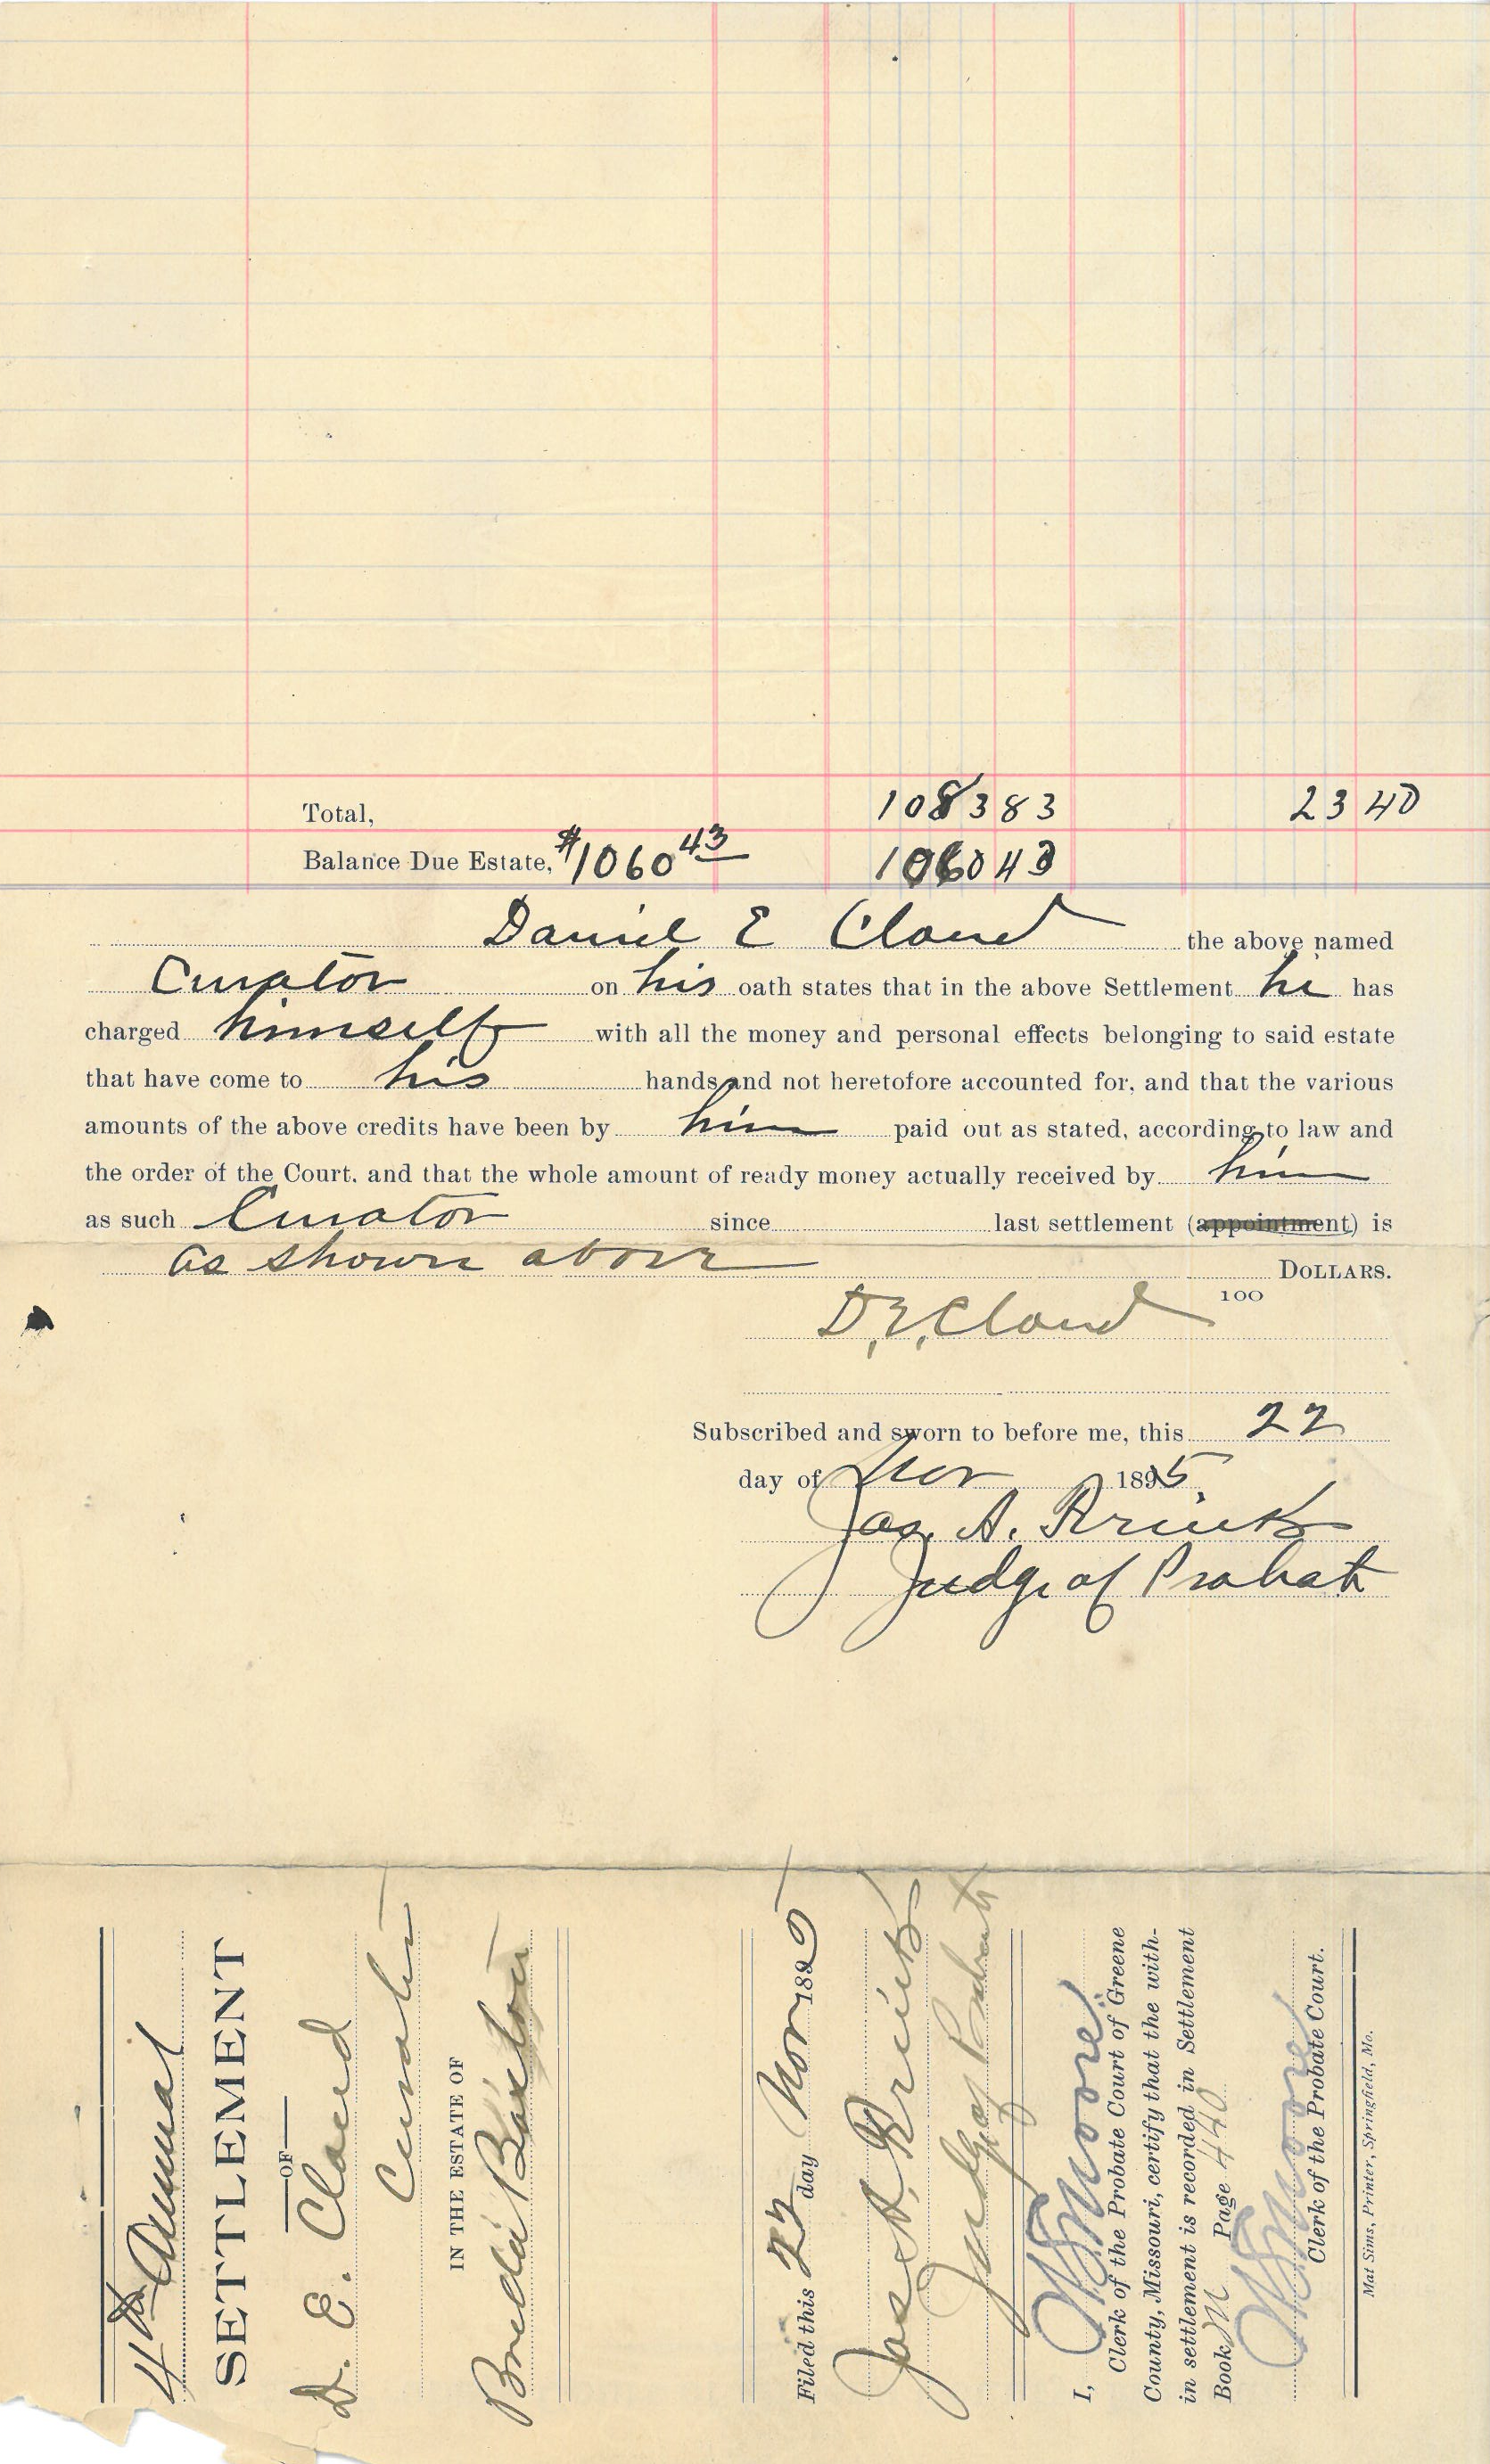 Total, 1083 83 23 40
Balance Due Estate, $1060 43 1060 43
Daniel E Cloud the above named
Curator on his oath states that in the above Settlement he has
charged himself with all the money and personal effects belonging to said estate
that have come to his hands and not heretofore accounted for, and that the various
amounts of the above credits have been by him paid out as stated, according to law and
the order of the Court. and that the whole amount of ready money actually received by him
as such Curator since last settlement (appointment) is
as shown above DOLLARS.
100
D. E. Cloud
Subscribed and sworn to before me, this 22
day of Nov 1895.
Jas. A. Brink
Judge of Probate
4th Annual
SETTLEMENT
OF
D. E. Cloud
Curator
IN THE ESTATE OF
Breda Baxton
Filed this 22 day Nov 1895
Jas A. Brink
Judge of Probate
I, W S Moore,
Clerk of the Probate Court of Greene
County, Missouri, certify that the with-
in settlement is recorded in Settlement
Book M Page 440
W S Moore
Clerk of the Probate Court.
Mat Sims, Printer, Springfield, Mo.